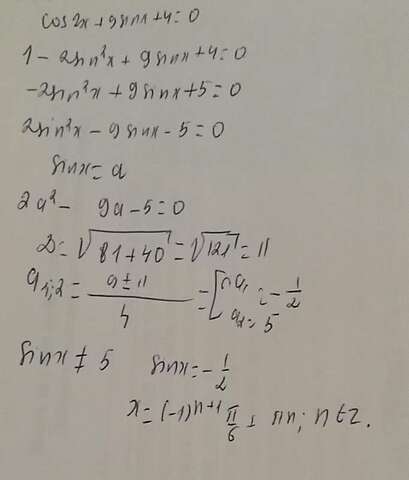 cos2x+9sinx+4=0
1-2sin²x+9sinx+4=0
-2sin²x+9sinx+5=0
2sin²x-9sinx-5=0
sinx=a
2a²- 9a-5=0
D=√81+40=√121=11
a₁;₂=(9±11)/4=[a₁=-1/2 a₂=5
sinx≠5 sinx=-1/2
x=(-1)ⁿ⁺¹ π/6 ± πn; n∈z.